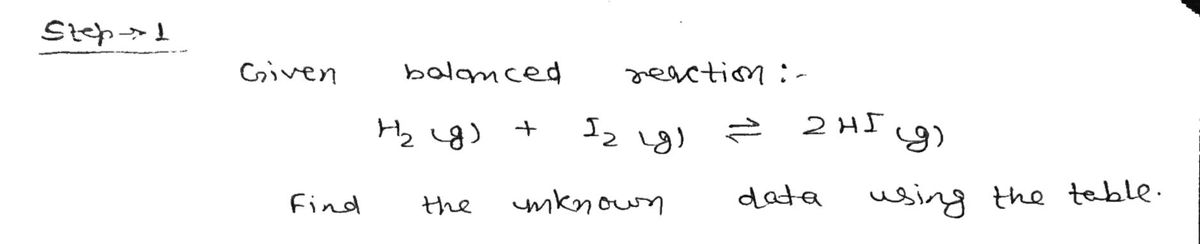 Step → 1
Given balanced reaction :-
H₂ (g) + I₂ (g) ⇌ 2HI (g)
Find the unknown data using the table.